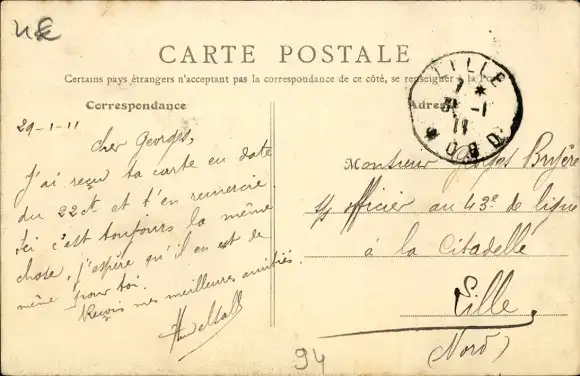 CARTE POSTALE
Certains pays étrangers n'acceptant pas la correspondance de ce côté, se renseigner à la Poste
Correspondance
29-1-11
Cher Georges,
J'ai reçu ta carte en date
du 22 ct et t'en remercie.
Ici c'est toujours la même
chose, j'espère qu'il en est de
même pour toi.
Reçois mes meilleures amitiés.
Adresse
LILLE
NORD
Monsieur Georges Bruyère
s/ officier au 43e de ligne
à la Citadelle
Lille.
(Nord)
94